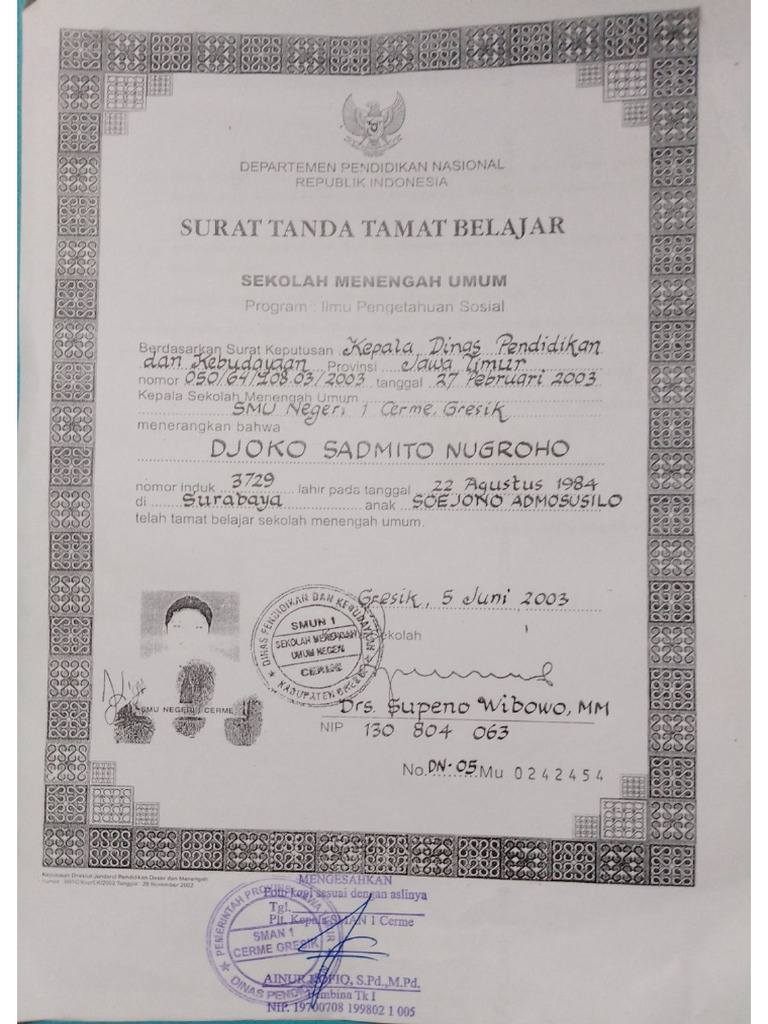 DEPARTEMEN PENDIDIKAN NASIONAL
REPUBLIK INDONESIA
SURAT TANDA TAMAT BELAJAR
SEKOLAH MENENGAH UMUM
Program : Ilmu Pengetahuan Sosial
Berdasarkan Surat Keputusan Kepala Dinas Pendidikan
dan Kebudayaan Provinsi Jawa Timur
nomor 050/64/108.03/2003 tanggal 27 Pebruari 2003
Kepala Sekolah Menengah Umum
SMU Negeri 1 Cerme, Gresik
menerangkan bahwa
DJOKO SADMITO NUGROHO
nomor induk 3729 lahir pada tanggal 22 Agustus 1984
di Surabaya anak SOEJONO ADMOSUSILO
telah tamat belajar sekolah menengah umum.
Gresik, 5 Juni 2003
Sekolah
DINAS PENDIDIKAN DAN KEBUDAYAAN
SMUN 1
SEKOLAH MENENGAH
UMUM NEGERI
CERME
KABUPATEN GRESIK
SMU NEGERI 1 CERME
Drs. Supeno Wibowo, MM
NIP 130 804 063
No. DN-05 Mu 0242454
Keputusan Direktur Jenderal Pendidikan Dasar dan Menengah
Tanggal : 28 November 2002
MENGESAHKAN
Foto kopi sesuai dengan aslinya
Tgl.
Plt. Kepala SMAN 1 Cerme
PEMERINTAH PROVINSI JAWA TIMUR
SMAN 1
CERME GRESIK
DINAS PENDIDIKAN
AINUR ROFIQ, S.Pd.,M.Pd.
Pembina Tk I
NIP. 19700708 199802 1 005